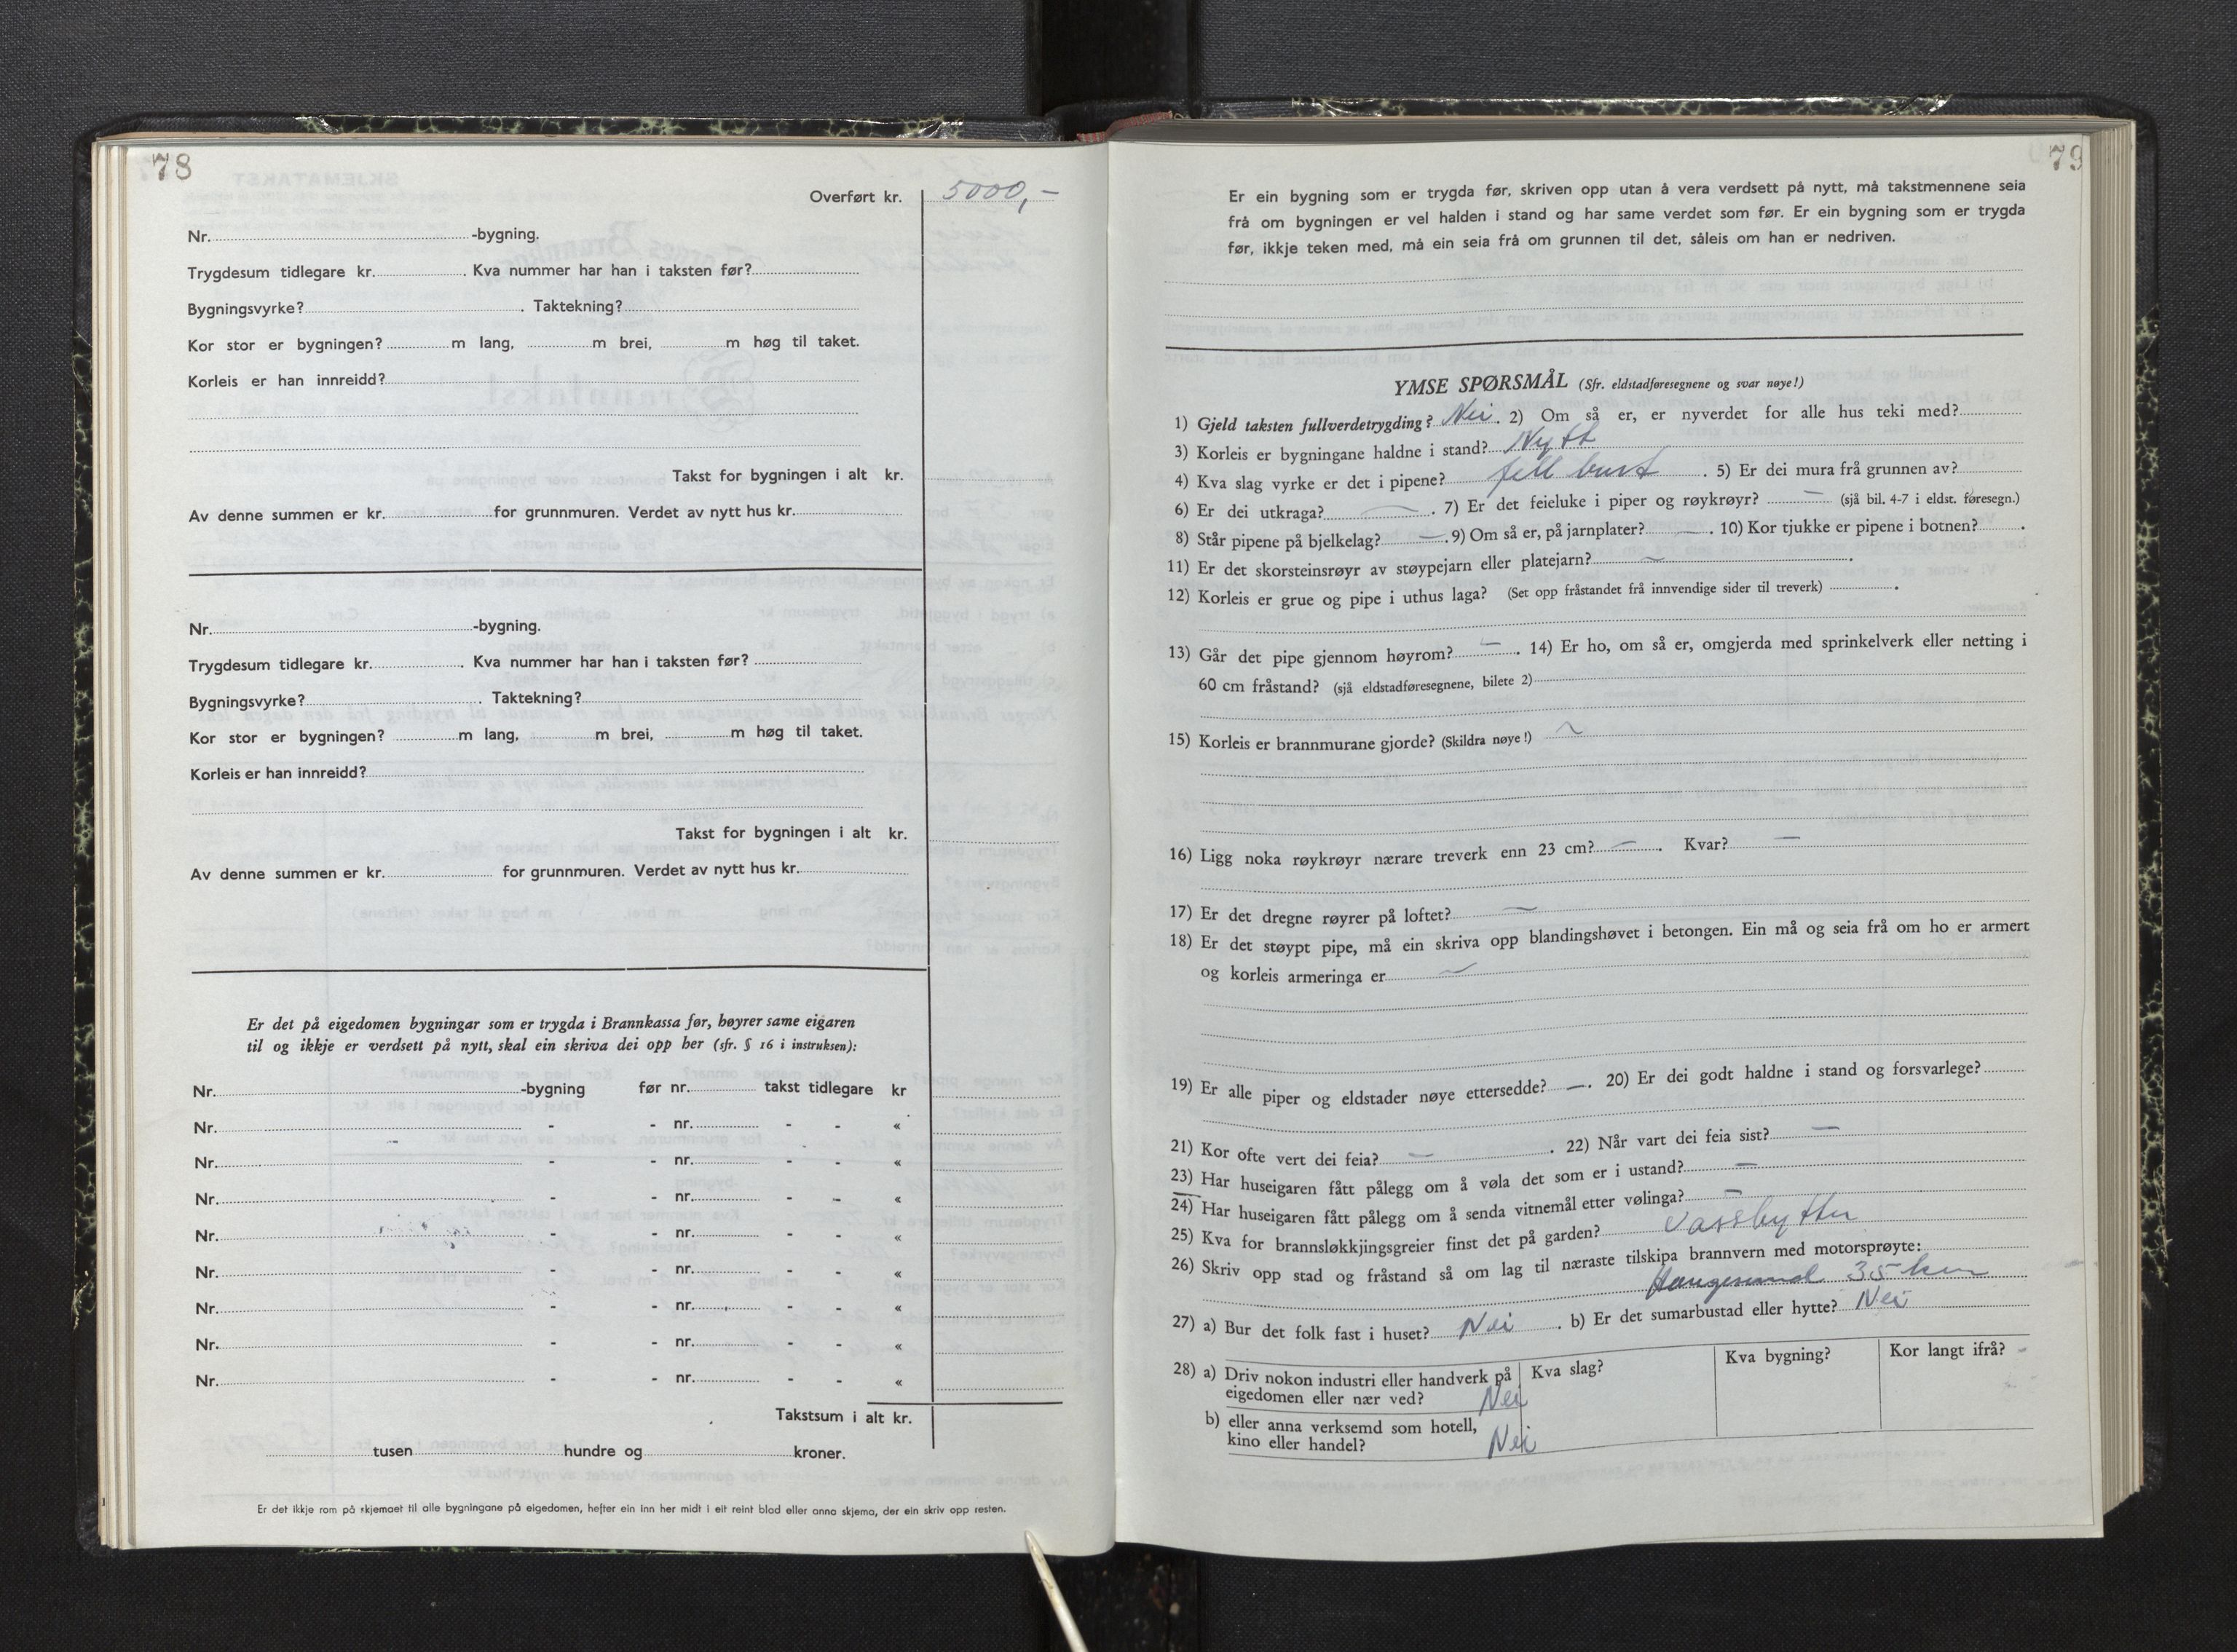 78
Overført kr. 5000,-
Nr. -bygning.
Trygdesum tidlegare kr. . Kva nummer har han i taksten før?
Bygningsvyrke? . Taktekning?
Kor stor er bygningen? m lang, m brei, m høg til taket.
Korleis er han innreidd?
Takst for bygningen i alt kr.
Av denne summen er kr. for grunnmuren. Verdet av nytt hus kr.
Nr. -bygning.
Trygdesum tidlegare kr. . Kva nummer har han i taksten før?
Bygningsvyrke? . Taktekning?
Kor stor er bygningen? m lang, m brei, m høg til taket.
Korleis er han innreidd?
Takst for bygningen i alt kr.
Av denne summen er kr. for grunnmuren. Verdet av nytt hus kr.
Er det på eigedomen bygningar som er trygda i Brannkassa før, høyrer same eigaren
til og ikkje er verdsett på nytt, skal ein skriva dei opp her (sfr. § 16 i instruksen):
Nr. -bygning før nr. takst tidlegare kr
Nr. - - nr. - - «
Nr. - - nr. - - «
Nr. - - nr. - - «
Nr. - - nr. - - «
Nr. - - nr. - - «
Nr. - - nr. - - «
Nr. - - nr. - - «
Nr. - - nr. - - «
Takstsum i alt kr.
tusen hundre og kroner.
Er det ikkje rom på skjemaet til alle bygningane på eigedomen, hefter ein inn her midt i eit reint blad eller anna skjema, der ein skriv opp resten.
79
Er ein bygning som er trygda før, skriven opp utan å vera verdsett på nytt, må takstmennene seia
frå om bygningen er vel halden i stand og har same verdet som før. Er ein bygning som er trygda
før, ikkje teken med, må ein seia frå om grunnen til det, såleis om han er nedriven.
YMSE SPØRSMÅL (Sfr. eldstadføresegnene og svar nøye!)
1) Gjeld taksten fullverdetrygding? Nei. 2) Om så er, er nyverdet for alle hus teki med?
3) Korleis er bygningane haldne i stand? Nytt
4) Kva slag vyrke er det i pipene? fell burt . 5) Er dei mura frå grunnen av?
6) Er dei utkraga? — . 7) Er det feieluke i piper og røykrøyr? — (sjå bil. 4-7 i eldst. føresegn.)
8) Står pipene på bjelkelag? — . 9) Om så er, på jarnplater? — . 10) Kor tjukke er pipene i botnen? .
11) Er det skorsteinsrøyr av støypejarn eller platejarn? — .
12) Korleis er grue og pipe i uthus laga? (Set opp fråstandet frå innvendige sider til treverk) .
13) Går det pipe gjennom høyrom? — . 14) Er ho, om så er, omgjerda med sprinkelverk eller netting i
60 cm fråstand? (sjå eldstadføresegnene, bilete 2)
15) Korleis er brannmurane gjorde? (Skildra nøye!) ~
16) Ligg noka røykrøyr nærare treverk enn 23 cm? — . Kvar? —
17) Er det dregne røyrer på loftet? —
18) Er det støypt pipe, må ein skriva opp blandingshøvet i betongen. Ein må og seia frå om ho er armert
og korleis armeringa er —
19) Er alle piper og eldstader nøye ettersedde? — . 20) Er dei godt haldne i stand og forsvarlege?
21) Kor ofte vert dei feia? — . 22) Når vart dei feia sist? —
23) Har huseigaren fått pålegg om å vøla det som er i ustand? —
24) Har huseigaren fått pålegg om å senda vitnemål etter vølinga? —
25) Kva for brannsløkkjingsgreier finst det på garden? Vassbytter
26) Skriv opp stad og fråstand så om lag til næraste tilskipa brannvern med motorsprøyte:
Haugesund 35 km
27) a) Bur det folk fast i huset? Nei . b) Er det sumarbustad eller hytte? Nei
28) a) Driv nokon industri eller handverk på Kva slag? Kva bygning? Kor langt ifrå? -
eigedomen eller nær ved? Nei
b) eller anna verksemd som hotell,
kino eller handel? Nei